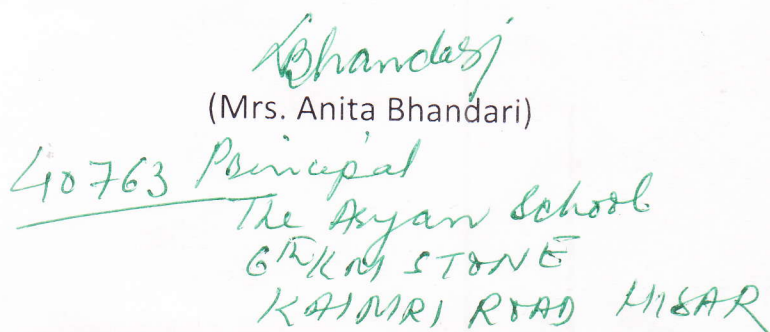 Bhandari
(Mrs. Anita Bhandari)
40763 Principal
The Aryan School
6th KM STONE
KAIMRI ROAD HISAR